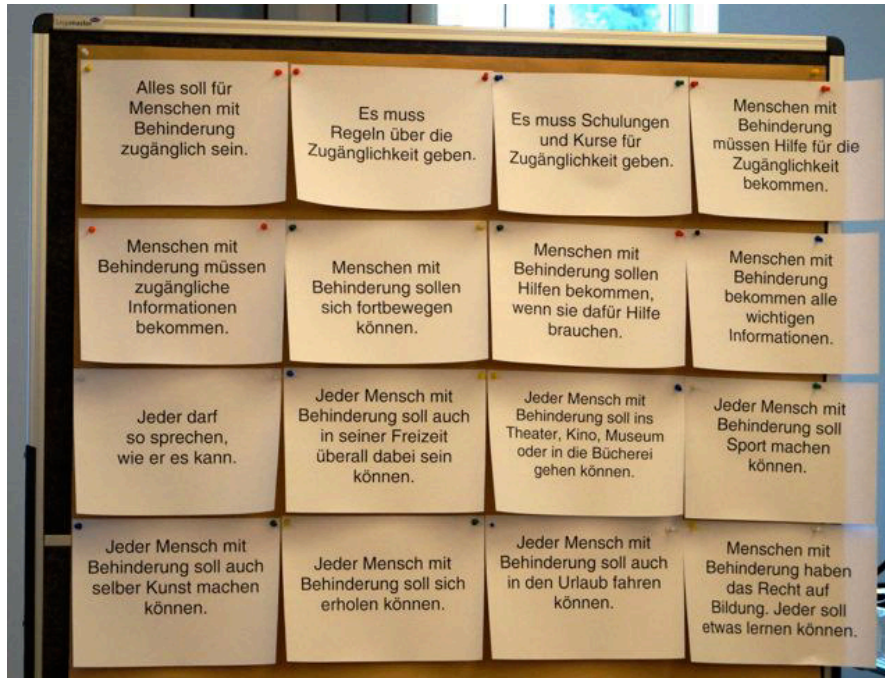 legamaster
Alles soll für
Menschen mit
Behinderung
zugänglich sein.
Es muss
Regeln über die
Zugänglichkeit geben.
Es muss Schulungen
und Kurse für
Zugänglichkeit geben.
Menschen mit
Behinderung
müssen Hilfe für die
Zugänglichkeit
bekommen.
Menschen mit
Behinderung müssen
zugängliche
Informationen
bekommen.
Menschen mit
Behinderung sollen
sich fortbewegen
können.
Menschen mit
Behinderung sollen
Hilfen bekommen,
wenn sie dafür Hilfe
brauchen.
Menschen mit
Behinderung
bekommen alle
wichtigen
Informationen.
Jeder darf
so sprechen,
wie er es kann.
Jeder Mensch mit
Behinderung soll auch
in seiner Freizeit
überall dabei sein
können.
Jeder Mensch mit
Behinderung soll ins
Theater, Kino, Museum
oder in die Bücherei
gehen können.
Jeder Mensch mit
Behinderung soll
Sport machen
können.
Jeder Mensch mit
Behinderung soll auch
selber Kunst machen
können.
Jeder Mensch mit
Behinderung soll sich
erholen können.
Jeder Mensch mit
Behinderung soll auch
in den Urlaub fahren
können.
Menschen mit
Behinderung haben
das Recht auf
Bildung. Jeder soll
etwas lernen können.